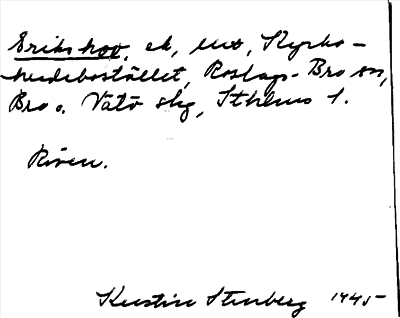 Erikshov, ek, uxo, Kyrko-
herdebostället, Roslags-Bro sn,
Bro o. Vätö slg, Sthlms l.
Riven.
Kerstin Stenberg 1945